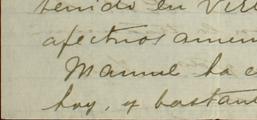 tenido en Vir
afectuosamen
Manuel ha e
hoy, y bastan